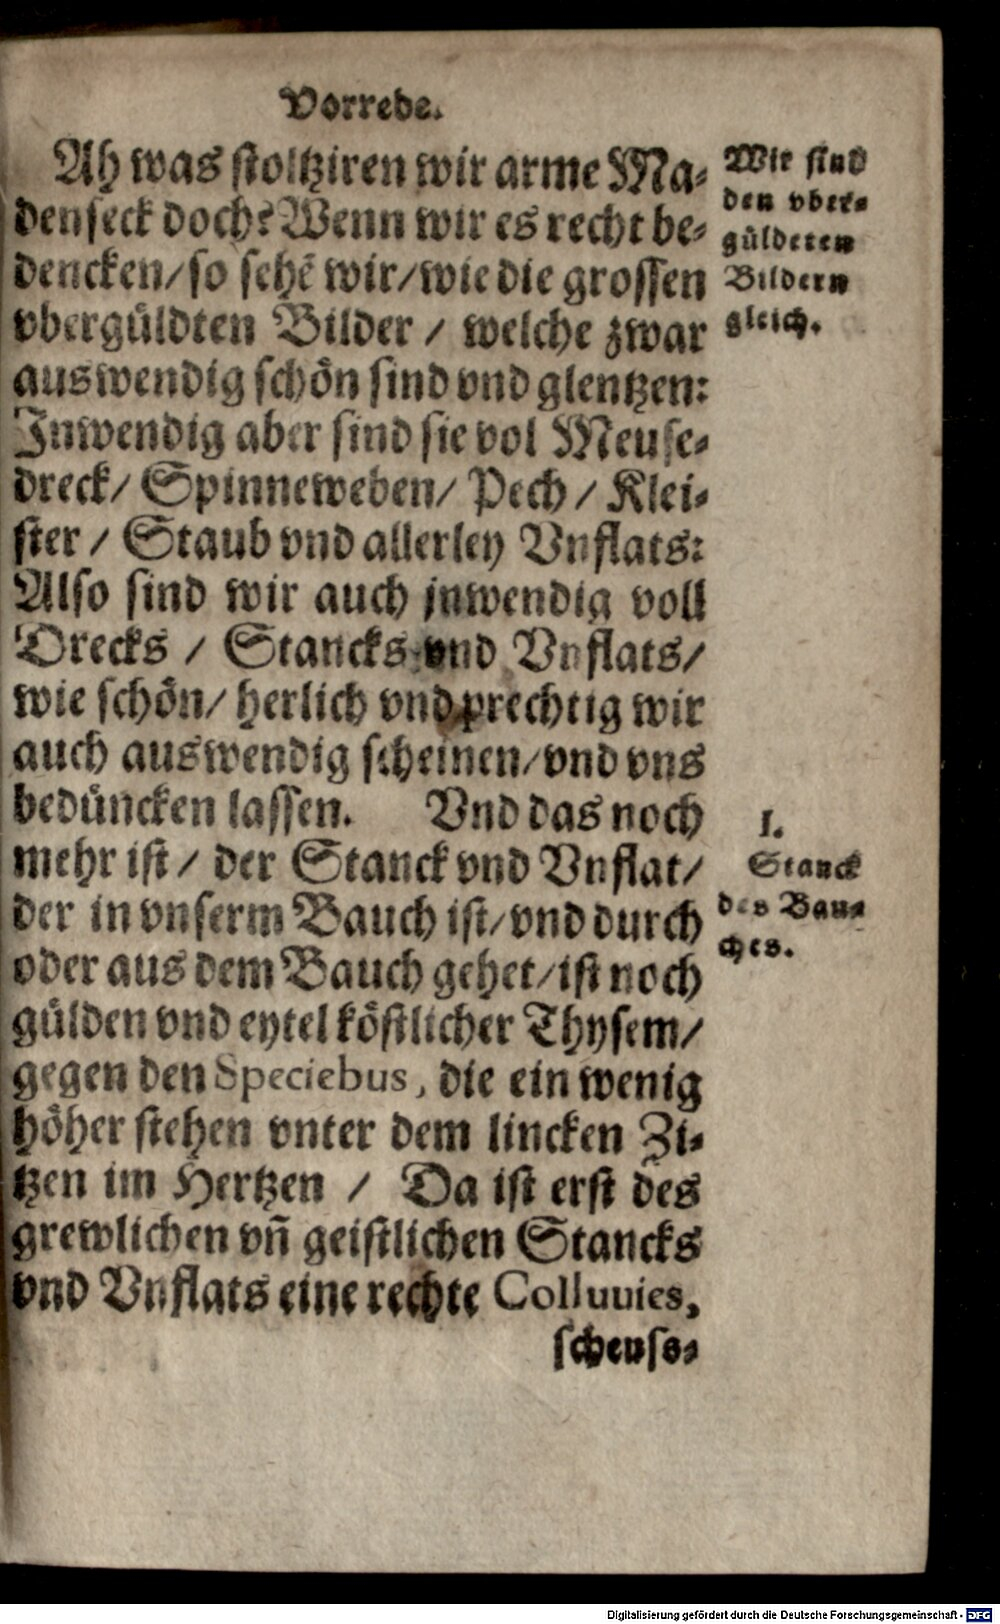 Vorrede.
Ah was stoltziren wir arme Ma-
denseck doch? Wenn wir es recht be-
dencken/ so sehẽ wir/ wie die grossen
vbergüldten Bilder / welche zwar
auswendig schön sind vnd glentzen:
Inwendig aber sind sie vol Meuse-
dreck/ Spinneweben/ Pech / Klei-
ster / Staub vnd allerley Vnflats:
Also sind wir auch jnwendig voll
Drecks / Stancks vnd Vnflats/
wie schön/ herlich vnd prechtig wir
auch auswendig scheinen/ vnd vns
bedüncken lassen. Vnd das noch
mehr ist / der Stanck vnd Vnflat/
der in vnserm Bauch ist/ vnd durch
oder aus dem Bauch gehet/ ist noch
gülden vnd eytel köstlicher Thysem/
gegen den Speciebus, die ein wenig
höher stehen vnter dem lincken Zi-
tzen im Hertzen / Da ist erst des
grewlichen vñ geistlichen Stancks
vnd Vnflats eine rechte Colluuies,
scheuss-
Wir sind
den vber-
gülderen
Bildern
gleich.
I.
Stanck
des Bau-
ches.
Digitalisierung gefördert durch die Deutsche Forschungsgemeinschaft - DFG